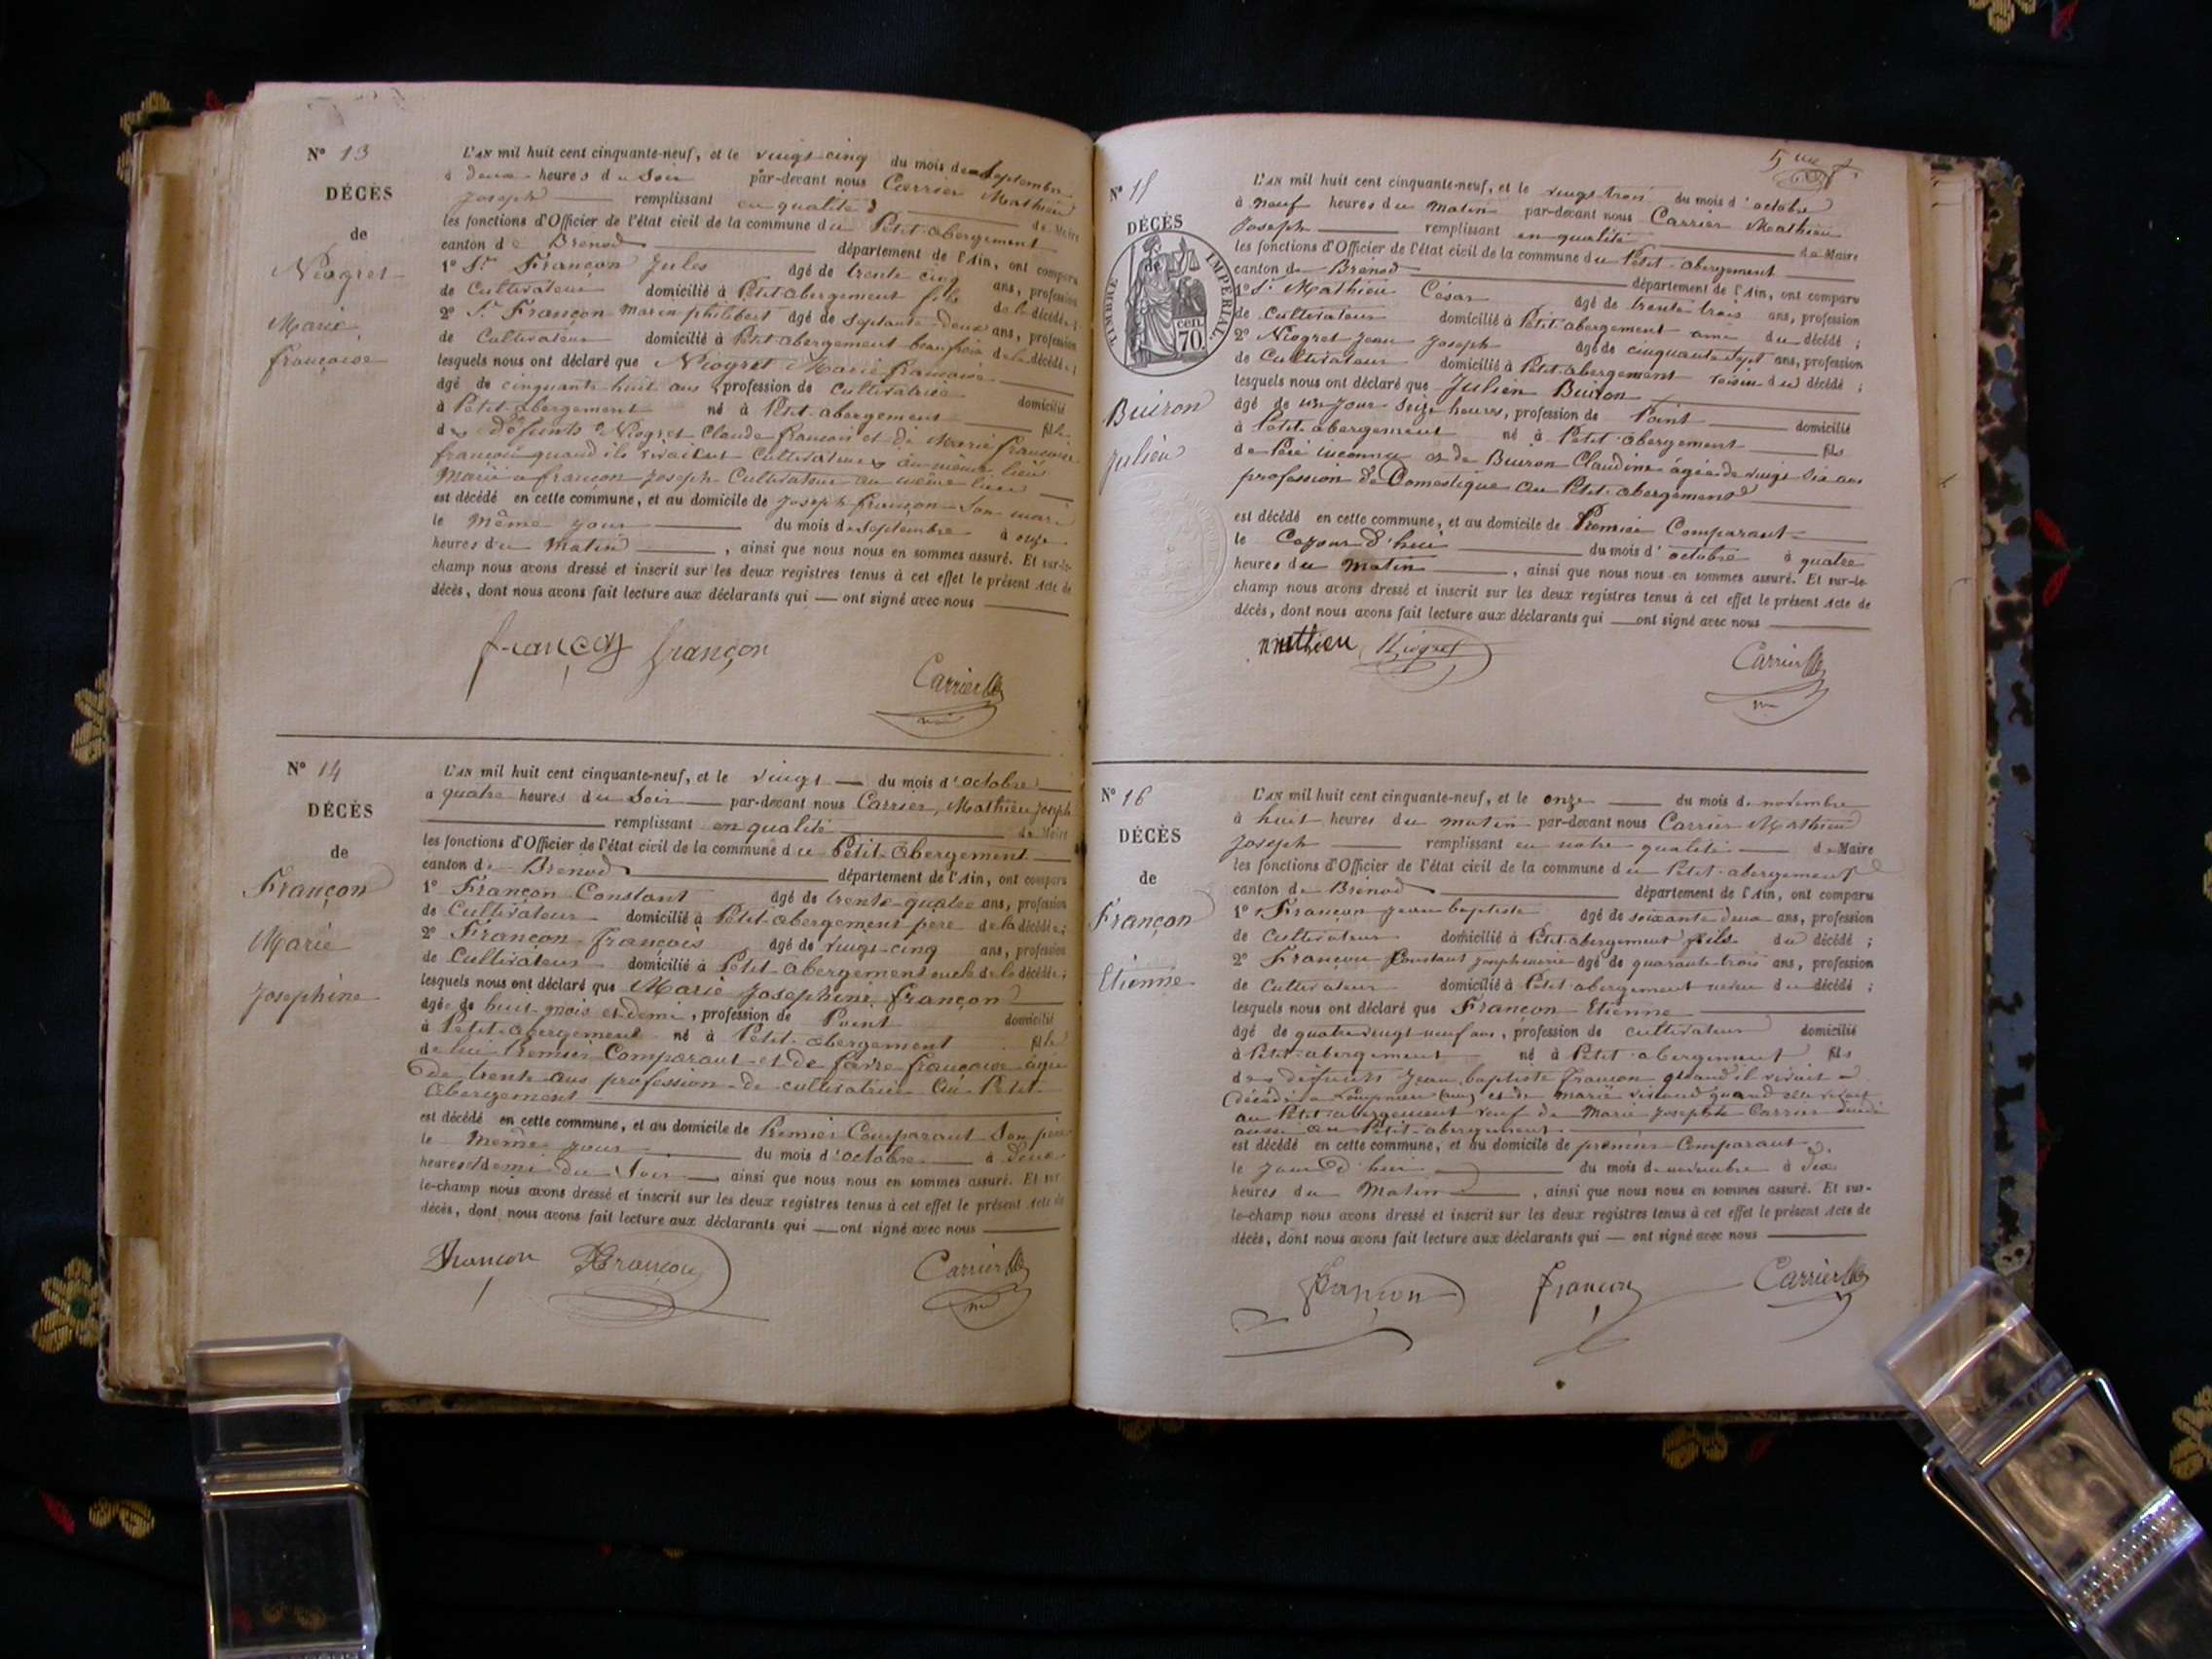 N° 13
DÉCÈS
de
Niogret
Marie
françoise
L'AN mil huit cent cinquante-neuf, et le vingt-cinq du mois de Septembre
à deux heures du Soir par-devant nous Carrier Mathieu
Joseph remplissant en qualité de Maire
les fonctions d'Officier de l'état civil de la commune du Petit-abergement
canton de Brenod département de l'Ain, ont comparu
1° Sr. Françon Jules âgé de trente cinq ans, profession
de Cultivateur domicilié à Petit-abergement fils de la décédée ;
2° Sr. Françon Marin philibert âgé de Septante-deux ans, profession
de Cultivateur domicilié à Petit-abergement beaufrère de la décédée ;
lesquels nous ont déclaré que Niogret Marie françoise
âgé de cinquante huit ans, profession de cultivatrice domicilié
à Petit-abergement né à Petit-abergement fille
des défunts Niogret Claude françois et de Marie françoise
françon quand ils vivaient Cultivateurs au même lieu
Mariée à françon Joseph Cultivateur au même lieu
est décédé en cette commune, et au domicile de Joseph françon Son mari
le même jour du mois de Septembre à onze
heures du Matin, ainsi que nous nous en sommes assuré. Et sur-le-
champ nous avons dressé et inscrit sur les deux registres tenus à cet effet le présent Acte de
décès, dont nous avons fait lecture aux déclarants qui — ont signé avec nous
françon françon
Carrier
N° 14
DÉCÈS
de
Françon
Marie
Josephine
L'AN mil huit cent cinquante-neuf, et le vingt — du mois d'octobre
à quatre heures du Soir par-devant nous Carrier, Mathieu Joseph
remplissant en qualité de Maire
les fonctions d'Officier de l'état civil de la commune du Petit-Abergement
canton de Brenod département de l'Ain, ont comparu
1° Françon Constant âgé de trente quatre ans, profession
de Cultivateur domicilié à Petit-abergement père de la décédée ;
2° Françon françois âgé de vingt-cinq ans, profession
de Cultivateur domicilié à Petit-abergement oncle de la décédée ;
lesquels nous ont déclaré que Marie Josephine françon
âgée de huit mois et demi, profession de Point domicilié
à Petit-abergement né à Petit-abergement fille
de lui Premier Comparant et de favre françoise âgée
de trente ans profession de cultivatrice Au Petit
Abergement
est décédé en cette commune, et au domicile de Premier Comparant Son père
le Même jour du mois d'octobre à deux
heures et demi du Soir, ainsi que nous nous en sommes assuré. Et sur
le-champ nous avons dressé et inscrit sur les deux registres tenus à cet effet le présent Acte de
décès, dont nous avons fait lecture aux déclarants qui — ont signé avec nous
françon françon
Carrier
N° 15
DÉCÈS
de
TIMBRE IMPERIAL.
70 cen.
Buiron
Julien
L'AN mil huit cent cinquante-neuf, et le vingt trois du mois d'octobre
à neuf heures du matin par-devant nous Carrier Mathieu
Joseph remplissant en qualité de Maire
les fonctions d'Officier de l'état civil de la commune du Petit-abergement
canton de Brenod département de l'Ain, ont comparu
1° Sr Mathieu César âgé de trente trois ans, profession
de Cultivateur domicilié à Petit-abergement ami du décédé ;
2° Niogret Jean Joseph âgé de cinquante sept ans, profession
de Cultivateur domicilié à Petit-abergement voisin du décédé ;
lesquels nous ont déclaré que Julien Buiron
âgé de un jour Seize heures, profession de Point domicilié
à Petit-abergement né à Petit-abergement fils
de Père inconnu et de Buiron Claudine âgée de vingt six ans
profession de Domestique Au Petit-abergement
est décédé en cette commune, et au domicile de Premier Comparant
le Cejour d'hui du mois d'octobre à quatre
heures du matin, ainsi que nous nous en sommes assuré. Et sur-le-
champ nous avons dressé et inscrit sur les deux registres tenus à cet effet le présent Acte de
décès, dont nous avons fait lecture aux déclarants qui — ont signé avec nous
mathieu Niogret
Carrier
N° 16
DÉCÈS
de
Françon
Etienne
L'AN mil huit cent cinquante-neuf, et le onze du mois de novembre
à huit heures du matin par-devant nous Carrier Mathieu
Joseph remplissant en notre qualité de Maire
les fonctions d'Officier de l'état civil de la commune du Petit-abergement
canton de Brenod département de l'Ain, ont comparu
1° Françon Jean baptiste âgé de soixante deux ans, profession
de Cultivateur domicilié à Petit-abergement fils du décédé ;
2° Françon Constant Joseph marie âgé de quarante trois ans, profession
de Cultivateur domicilié à Petit-abergement neveu du décédé ;
lesquels nous ont déclaré que Françon Etienne
âgé de quatre vingt neuf ans, profession de cultivateur domicilié
à Petit-abergement né à Petit-abergement fils
des défunts Jean baptiste françon quand il vivait
décédé à et de marie quand elle vivait
au Petit-abergement veuf de Marie Josephte Carrier
aussi au Petit-abergement
est décédé en cette commune, et au domicile de premier Comparant
le jour d'hui du mois de novembre à dix
heures du Matin, ainsi que nous nous en sommes assuré. Et sur-
le-champ nous avons dressé et inscrit sur les deux registres tenus à cet effet le présent Acte de
décès, dont nous avons fait lecture aux déclarants qui — ont signé avec nous
françon françon Carrier